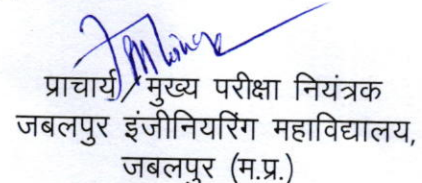 प्राचार्य/मुख्य परीक्षा नियंत्रक
जबलपुर इंजीनियरिंग महाविद्यालय,
जबलपुर (म.प्र.)